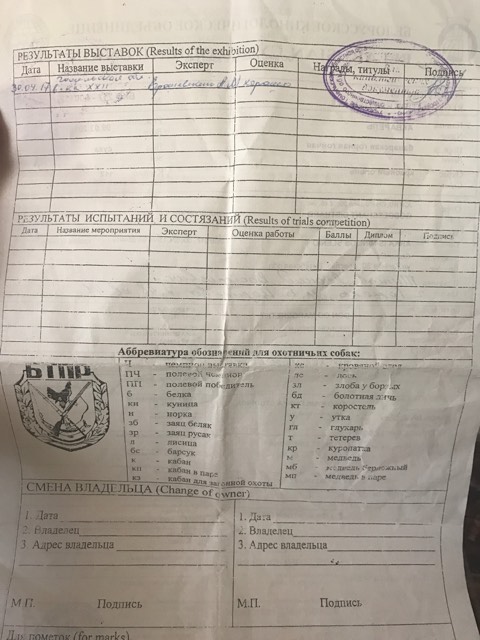 РЕЗУЛЬТАТЫ ВЫСТАВОК (Results of the exhibition)
Дата Название выставки Эксперт Оценка Награды, титулы Подпись
30.04.17 XXII хорошо
РЕЗУЛЬТАТЫ ИСПЫТАНИЙ И СОСТЯЗАНИЙ (Results of trials competition)
Дата Название мероприятия Эксперт Оценка работы Баллы Диплом Подпись
Аббревиатура обозначений для охотничьих собак:
БТПР
Ч - чемпион выставки
ПЧ - полевой чемпион
ПП - полевой победитель
б - белка
кн - куница
н - норка
зб - заяц беляк
зр - заяц русак
л - лисица
бс - барсук
к - кабан
кп - кабан в паре
кз - кабан для загонной охоты
кс - кровяной след
лс - лось
зл - злоба у борзых
бд - болотная дичь
кт - коростель
у - утка
гл - глухарь
т - тетерев
кр - куропатка
м - медведь
мб - медведь берложный
мп - медведь в паре
СМЕНА ВЛАДЕЛЬЦА (Change of owner)
1. Дата
2. Владелец
3. Адрес владельца
М.П. Подпись
1. Дата
2. Владелец
3. Адрес владельца
М.П. Подпись
Для пометок (for marks)